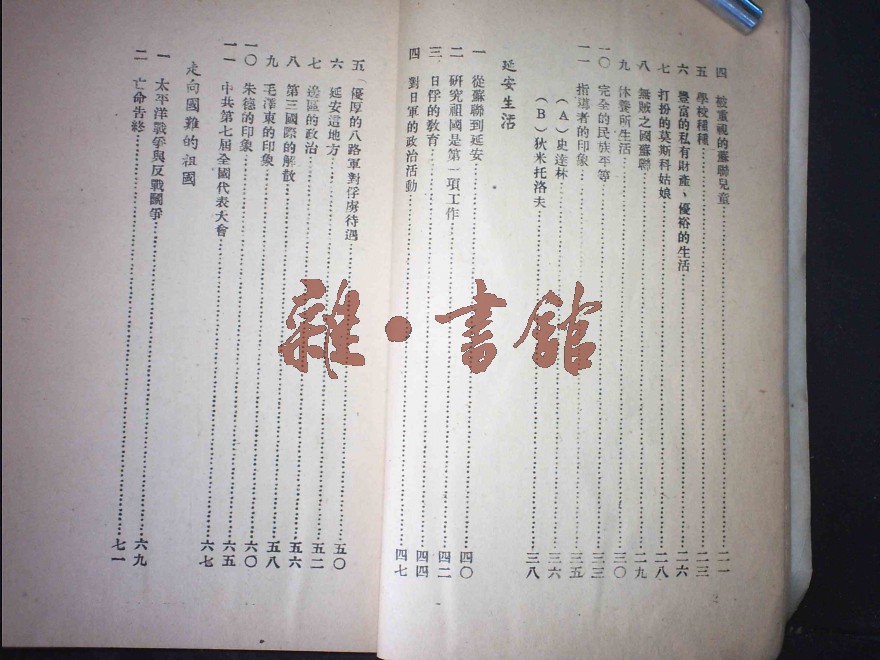 四 被重視的蘇聯兒童……二一
五 學校種種……二三
六 豐富的私有財產、優裕的生活……二六
七 打扮的莫斯科姑娘……二八
八 無賊之國蘇聯……二九
九 休養所生活……三〇
一〇 完全的民族平等……三三
一一 指導者的印象……三五
（A）史達林……三六
（B）狄米托洛夫……三八
延安生活
一 從蘇聯到延安……四〇
二 研究祖國是第一項工作……四二
三 日俘的教育……四四
四 對日軍的政治活動……四七
五 優厚的八路軍對俘虜待遇……五〇
六 延安這地方……五二
七 邊區的政治……五六
八 第三國際的解散……五八
九 毛澤東的印象……六〇
一〇 朱德的印象……六五
一一 中共第七屆全國代表大會……六七
走向國難的祖國
一 太平洋戰爭與反戰鬪爭……六九
二 亡命告終……七一
雜·書館